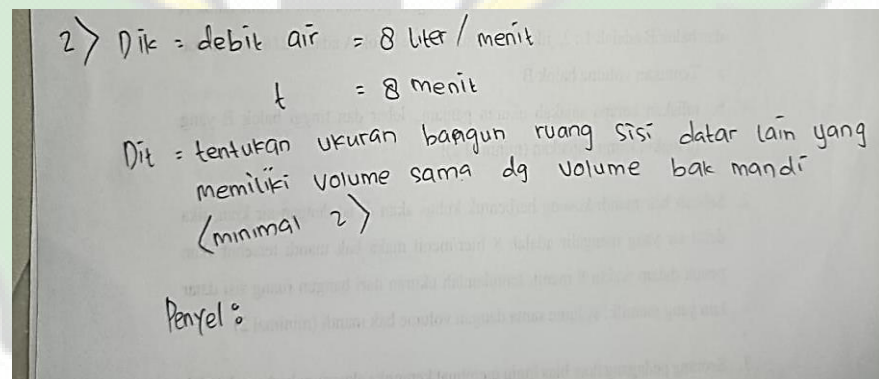 2> Dik = debit air = 8 liter / menit
t = 8 menit
Dit = tentukan ukuran bangun ruang sisi datar lain yang
memiliki volume sama dg volume bak mandi
(minimal 2)
Penyel :